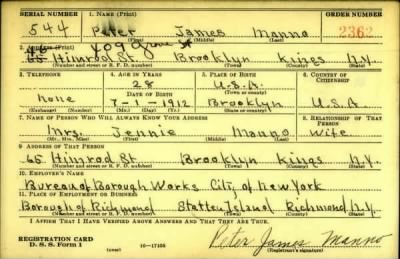 SERIAL NUMBER 1. NAME (Print) ORDER NUMBER
544 Peter James Manno 2362
(First) (Middle) (Last)
409
2. ADDRESS (Print)
65 Himrod St. Brooklyn Kings N.Y.
(Number and street or R. F. D. number) (Town) (County) (State)
3. TELEPHONE 4. AGE IN YEARS 5. PLACE OF BIRTH 6. COUNTRY OF CITIZENSHIP
28 U.S.A.
None DATE OF BIRTH
7-1-1912 Brooklyn U.S.A.
(Exchange) (Number) (Mo.) (Day) (Yr.) (Town or county) (State or country)
7. NAME OF PERSON WHO WILL ALWAYS KNOW YOUR ADDRESS 8. RELATIONSHIP OF THAT PERSON
Mrs. Jennie Manno Wife
(Mr., Mrs., Miss) (First) (Middle) (Last)
9. ADDRESS OF THAT PERSON
65 Himrod St. Brooklyn Kings N.Y.
(Number and street or R. F. D. number) (Town) (County) (State)
10. EMPLOYER'S NAME
Bureau of Borough Works City of New York
11. PLACE OF EMPLOYMENT OR BUSINESS
Borough of Richmond Statten Island Richmond N.Y.
(Number and street or R. F. D. number) (Town) (County) (State)
I AFFIRM THAT I HAVE VERIFIED ABOVE ANSWERS AND THAT THEY ARE TRUE.
REGISTRATION CARD
D. S. S. Form 1 (over) 16-17105 Peter James Manno
(Registrant's signature)